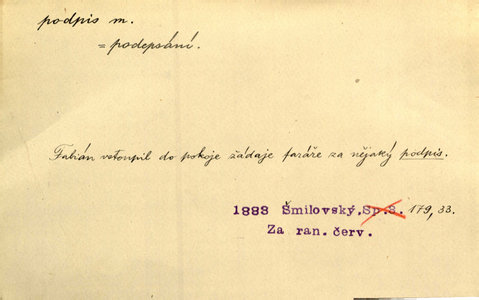 podpis m.
= podepsání.
Fabián vstoupil do pokoje žádaje faráře za nějaký podpis.
1888 Šmilovský, Sp.3. 179,33.
Za ran. červ.